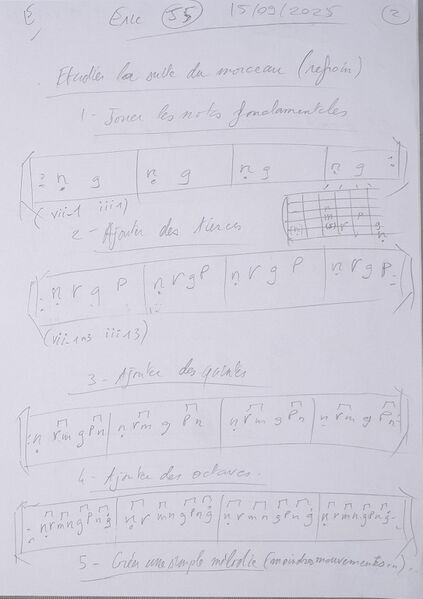 Eric 55 15/09/2025 2
Etudier la suite du morceau (refrain)
1 - Jouer les notes fondamentales
: ṇ g | ṇ g | ṇ g | ṇ g :
(vii-1 iii1)
2 - Ajouter des tierces
: ṇ r g p | ṇ r g p | ṇ r g p | ṇ r g p :
(vii-1n3 iii13)
3 - Ajouter des quintes
: ṇ r m g p n | ṇ r m g p n | ṇ r m g p n | ṇ r m g p n :
4 - Ajouter des octaves.
: ṇ r m n g p n ġ | ṇ r m n g p n ġ | ṇ r m n g p n ġ | ṇ r m n g p n ġ :
5 - Créer une simple mélodie (moindres mouvements main).